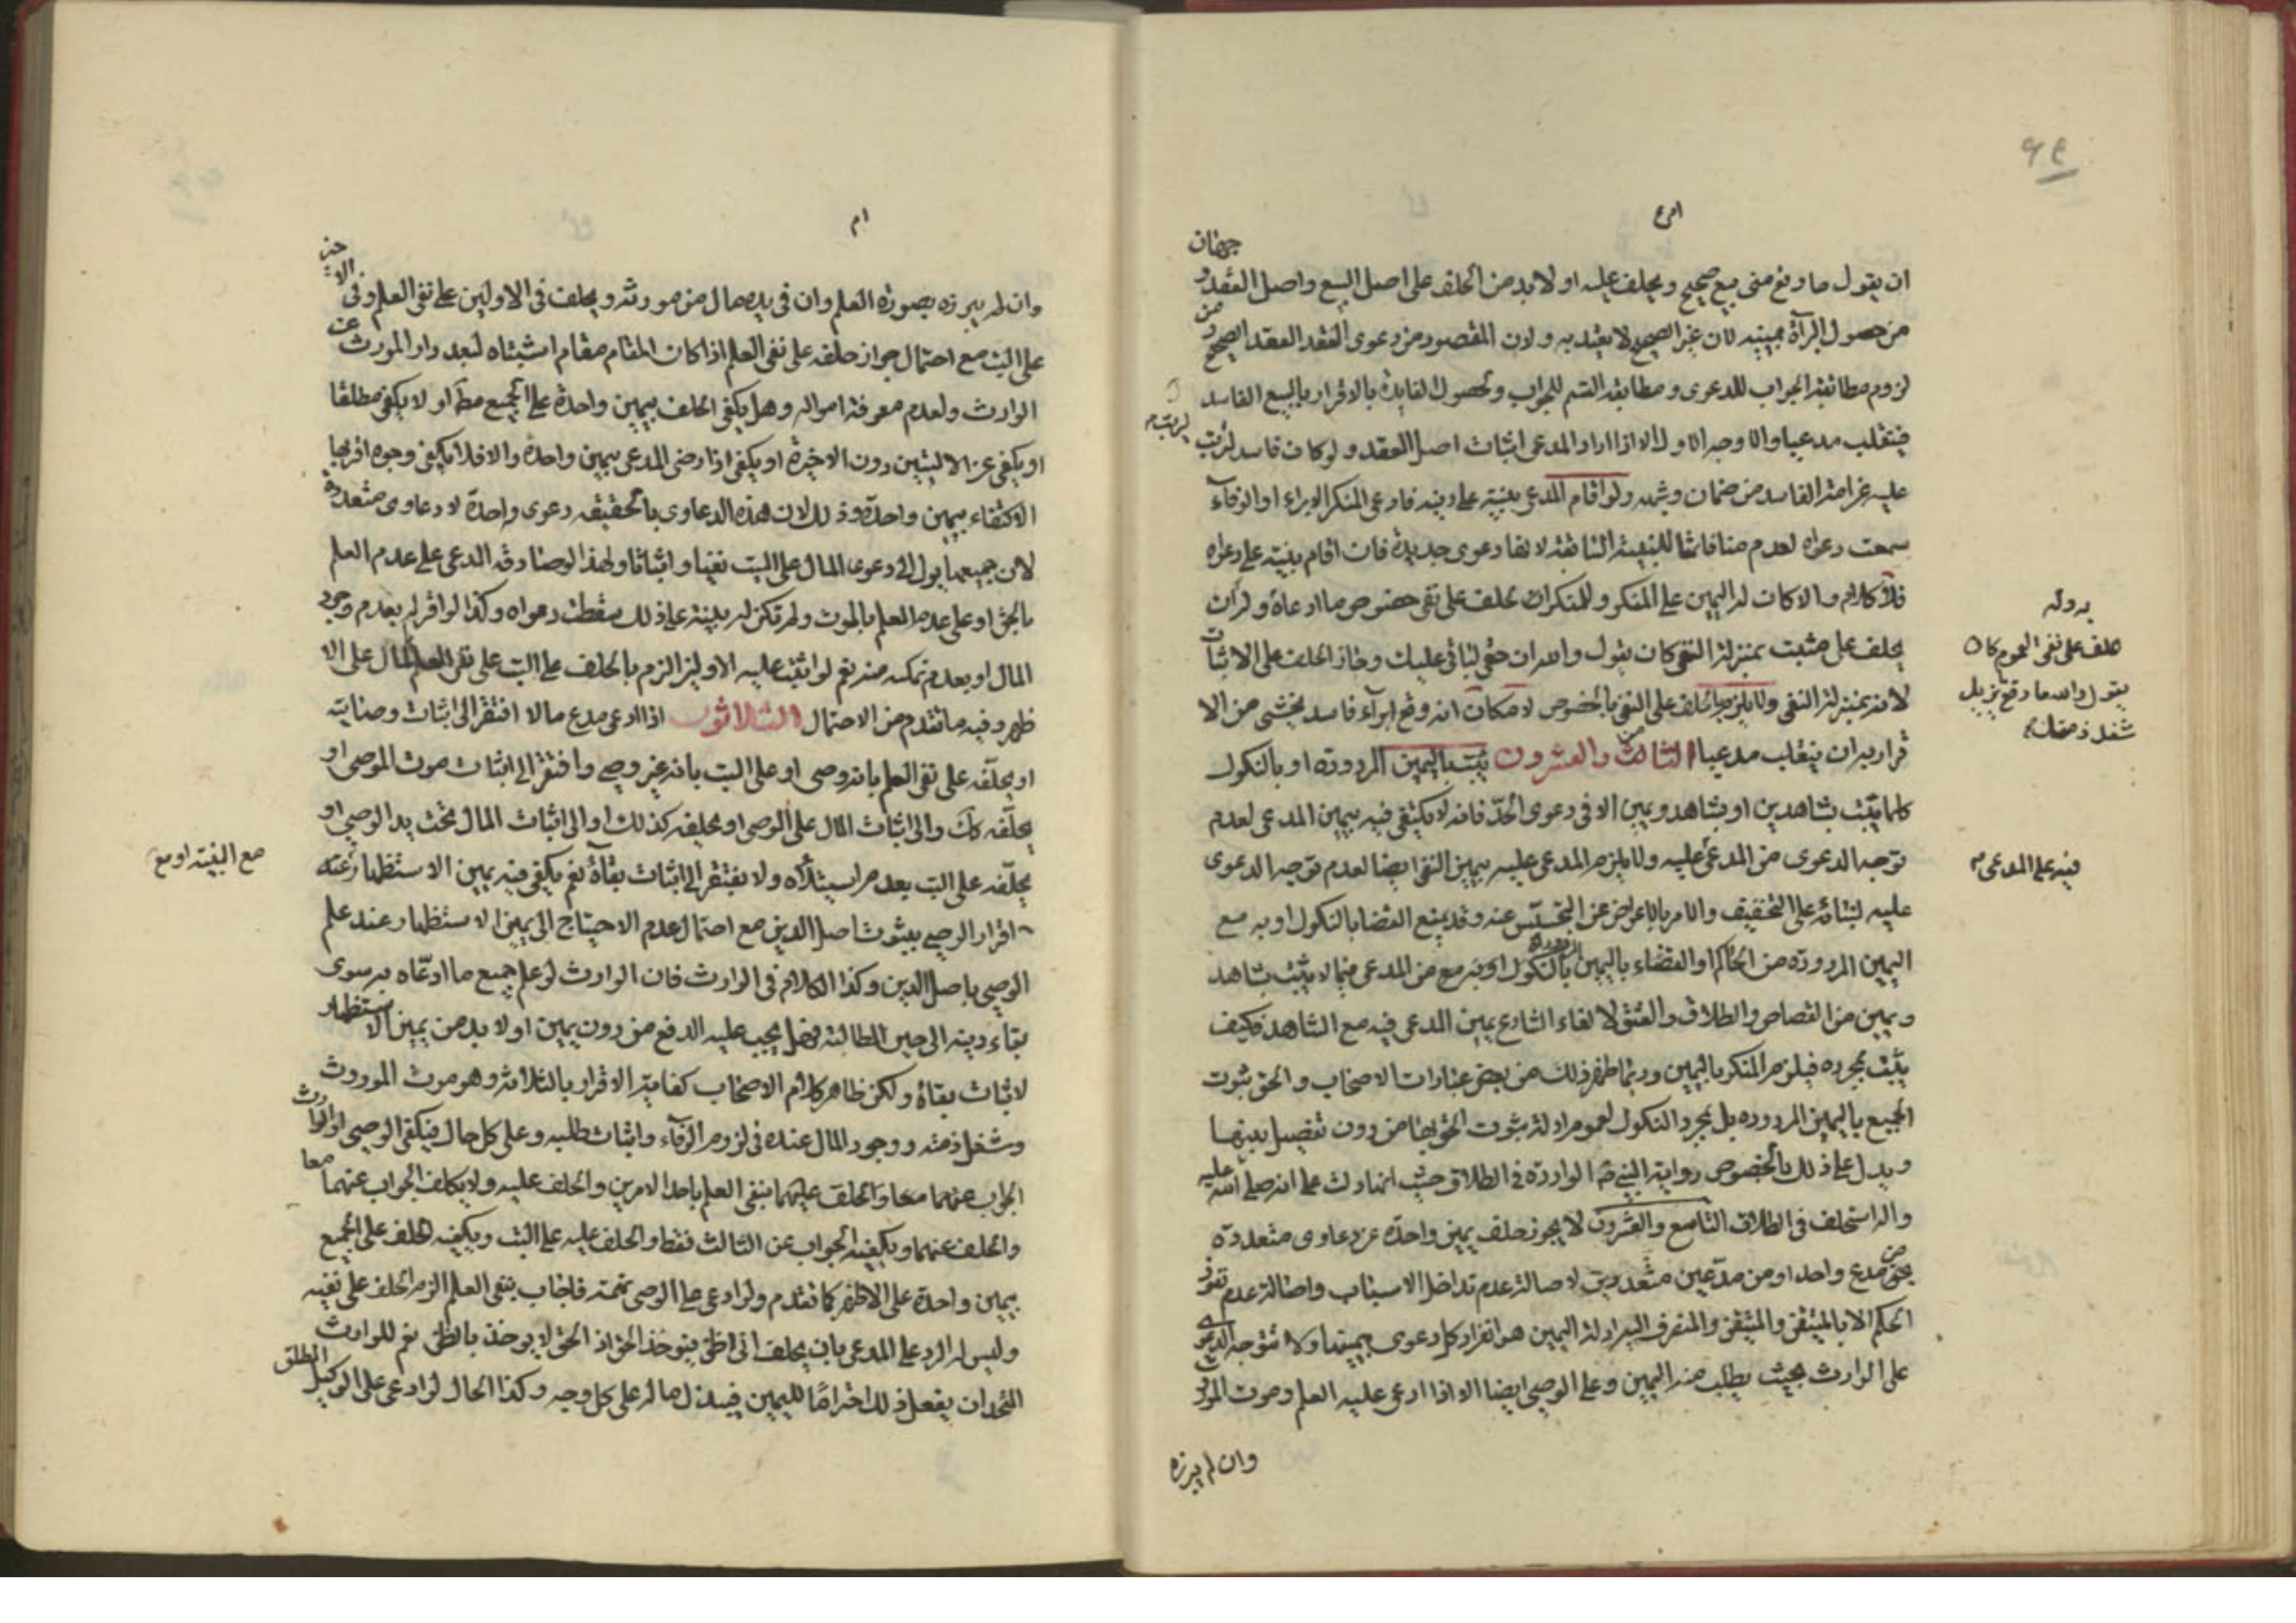 ٦٩
جهتان
ان يقول ما وقع مني بيع صحيح ويحلف عليه او لابد من الحلف على اصل البيع واصل العقد و
من حصول البرآة بيمينه لان غير الصحيح لا يعتد به ولان المقصود من دعوى العقد العقد الصحيح ومن
لزوم مطابقة الجواب للدعوى ومطابقة القسم للجواب ولحصول الفايدة بالاقرار بالبيع الفاسد
فينقلب مدعيا والاوجه الاول الا اذا اراد المدعي اثبات اصل العقد ولو كان فاسد
عليه غرامة الفاسد من ضمان وشبهه ولو اقام المدعي بينة على دينه فادعى المنكر الابراء او الوفآء
سمعت دعواه لعدم منافاتها للبينة السابقة لانها دعوى جديدة فان اقام بينة على دعواه
فلا كلام والا كان له اليمين على المنكر وللمنكر ان يحلف على نفي خصوص ما ادعاه وله ان
يحلف على مثبت بمنزلة النفي كان يقول والله ان حقي لباق عليك وجاز الحلف على الاثبات
لانه بمنزلة النفي ولا يلزم بالحلف على النفي بالخصوص لامكان انه وقع ابرآء فاسد يخشى من الا
قرار به ان ينقلب مدعيا الثامن والعشرون يثبت باليمين المردودة او بالنكول
كلما يثبت بشاهدين او بشاهد ويمين الا في دعوى الحد فانه لا يكتفي فيه بيمين المدعي لعدم
توجه الدعوى من المدعي عليه ولا يلزم المدعى عليه بيمين النفي ايضا لعدم توجه الدعوى
عليه لبنائه على التخفيف والامر بالاعراض عن التجسس عنه وقد يمنع القضا بالنكول او به مع
اليمين المردودة من الحاكم او القضاء باليمين المردودة بالنكول او به مع من المدعي فيما لا يثبت بشاهد
ويمين من القصاص والطلاق والعتق لالغاء الشارع يمين المدعي فيه مع الشاهد فكيف
يثبت بمجرده فيلزم المنكر باليمين وربما ظهر ذلك من بعض عبارات الاصحاب والحق ثبوت
الجميع باليمين المردودة بل بمجرد النكول لعموم ادلة ثبوت الحق بها من دون تفصيل بينهما
ويدل على ذلك بالخصوص رواية النبي ص الواردة في الطلاق حيث انها دلت على انه صلى الله عليه
واله استحلف في الطلاق التاسع والعشرون لا يجوز حلف يمين واحدة عن دعاوى متعددة
بحق من مدع واحد او من مدعين متعددين لاصالة عدم تداخل الاسباب واصالة عدم نفوذ
الحكم الا بالمتيقن والمتيقن والمنصرف اليه ادلة اليمين هو انفراد كل دعوى بيمينها ولا تتوجه الدعوى
على الوارث بحيث يطلب منه اليمين وعلى الوصي ايضا الا اذا ادعى عليه العلم وموت المورث
وان لم يبرزه
حلف على نفي العموم كان
يقول والله ما وقع مزيل
شغل ذمتك
فيه على المدعى
وان لم يبرزه بصورة العلم وان في يده مال من مورثه ويحلف في الاولين على نفي العلم وفي الاخير
على البت مع احتمال جواز حلفه على نفي العلم اذا كان المقام مقام اشتباه لبعد دار المورث عن
الوارث ولعدم معرفة امواله وهل يكفي الحلف بيمين واحدة على الجميع مطلقا او لا يكفي مطلقا
او يكفي عن الاوليتين دون الاخيرة او يكفي اذا رضي المدعي بيمين واحدة والا فلا يكفي وجوه اقربها
الاكتفاء بيمين واحدة وذلك لان هذه الدعاوى بالحقيقة دعوى واحدة لا دعاوى متعددة
لان جميعها يؤل الى دعوى المال على البت نفيا واثباتا ولهذا لو صادقه المدعي على عدم العلم
بالحق او على عدم العلم بالموت ولم تكن له بينة على ذلك سقطت دعواه وكذا لو اقر له بعدم وجود
المال او بعدم تمكنه منه نعم لو اثبت عليه الاوليتين الزم بالحلف على البت على نفي المال على الا
ظهر وفيه ما تقدم من الاحتمال الثلاثون اذا ادعى مدع مالا افتقر الى اثبات وصايته
او يحلفه على نفي العلم بانه وصي او على البت بانه غير وصي وافتقر الى اثبات موت الموصي او
يحلفه كك والى اثبات المال على الموصي او تحليفه كذلك او الى اثبات المال تحت يد الوصي او
يحلفه على البت بعدم استيلائه ولا يفتقر الى اثبات بقائه نعم يكفي فيه يمين الاستظهار عنه
اقرار الوصي بثبوت اصل الدين مع احتمال عدم الاحتياج الى يمين الاستظهار عند علم
الوصي باصل الدين وكذا الكلام في الوارث فان الوارث لو علم جميع ما ادعاه به سوى
بقاء دينه الى حين المطالبة فهل يجب عليه الدفع من دون يمين او لا بد من يمين الاستظهار
لاثبات بقائه ولكن ظاهر كلام الاصحاب كفاية الاقرار بالثلاثة وهو موت الموروث
وشغل ذمته ووجود المال عنده في لزوم الوفآء واثبات طلبه وعلى كل حال فيكفي الوصي او الوارث
الجواب عنهما معا والحلف عليهما بنفي العلم باحد الامرين والحلف عليه ولا يكلف الجواب عنهما معا
والحلف عنهما ويكفيه الجواب عن الثالث فقط والحلف عليه على البت ويكفيه الحلف على الجميع
بيمين واحدة على الاظهر كما تقدم ولو ادعى على الوصي تهمة فاجاب بنفي العلم الزم الحلف على نفيه
وليس له الرد على المدعي بان يحلف اني اظن بنو خذ الحق اذ الحق لا يؤخذ بالظن نعم للوارث
المتحد ان يفعل ذلك احتراما لليمين فيبذل ماله على كل وجه وكذا الحال لو ادعى على الوكيل المطلق
مع البينة او مع